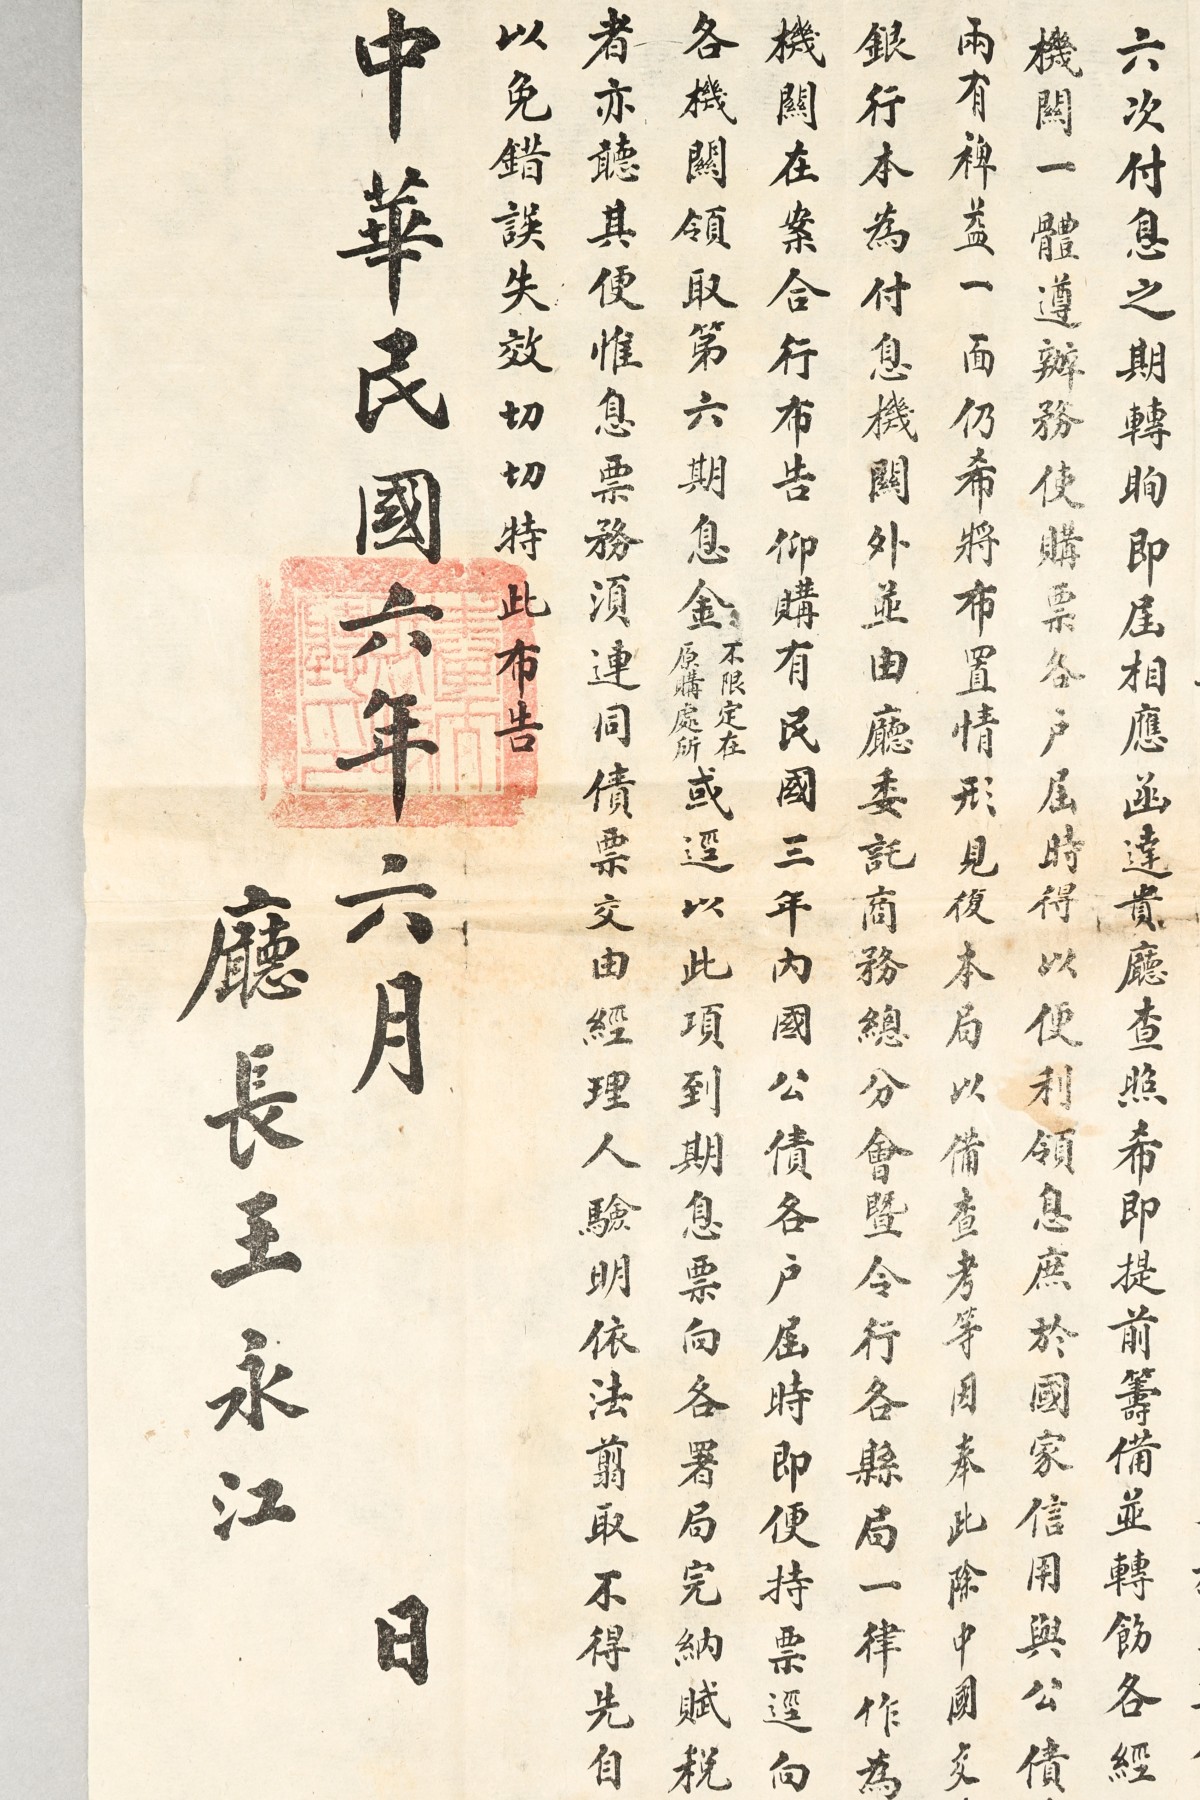 六次付息之期轉眴即屆相應函達貴廳查照希即提前籌備並轉飭各經
機關一體遵辦務使購票各户屆時得以便利領息庶於國家信用與公債
兩有裨益一面仍希將布置情形見復本局以備查考等因奉此除中國交
銀行本為付息機關外並由廳委託商務總分會暨令行各縣局一律作為
機關在案合行布告仰購有民國三年內國公債各户屆時即便持票逕向
各機關領取第六期息金不限定在原購處所或逕以此項到期息票向各署局完納賦税
者亦聽其便惟息票務須連同債票交由經理人驗明依法翦取不得先自
以免錯誤失效切切特此布告
中華民國六年六月 日
廳長王永江